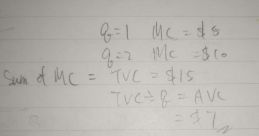 q=1 MC = $5
q=2 MC = $10
Sum of MC = TVC = $15
TVC ÷ q = AVC
= $7